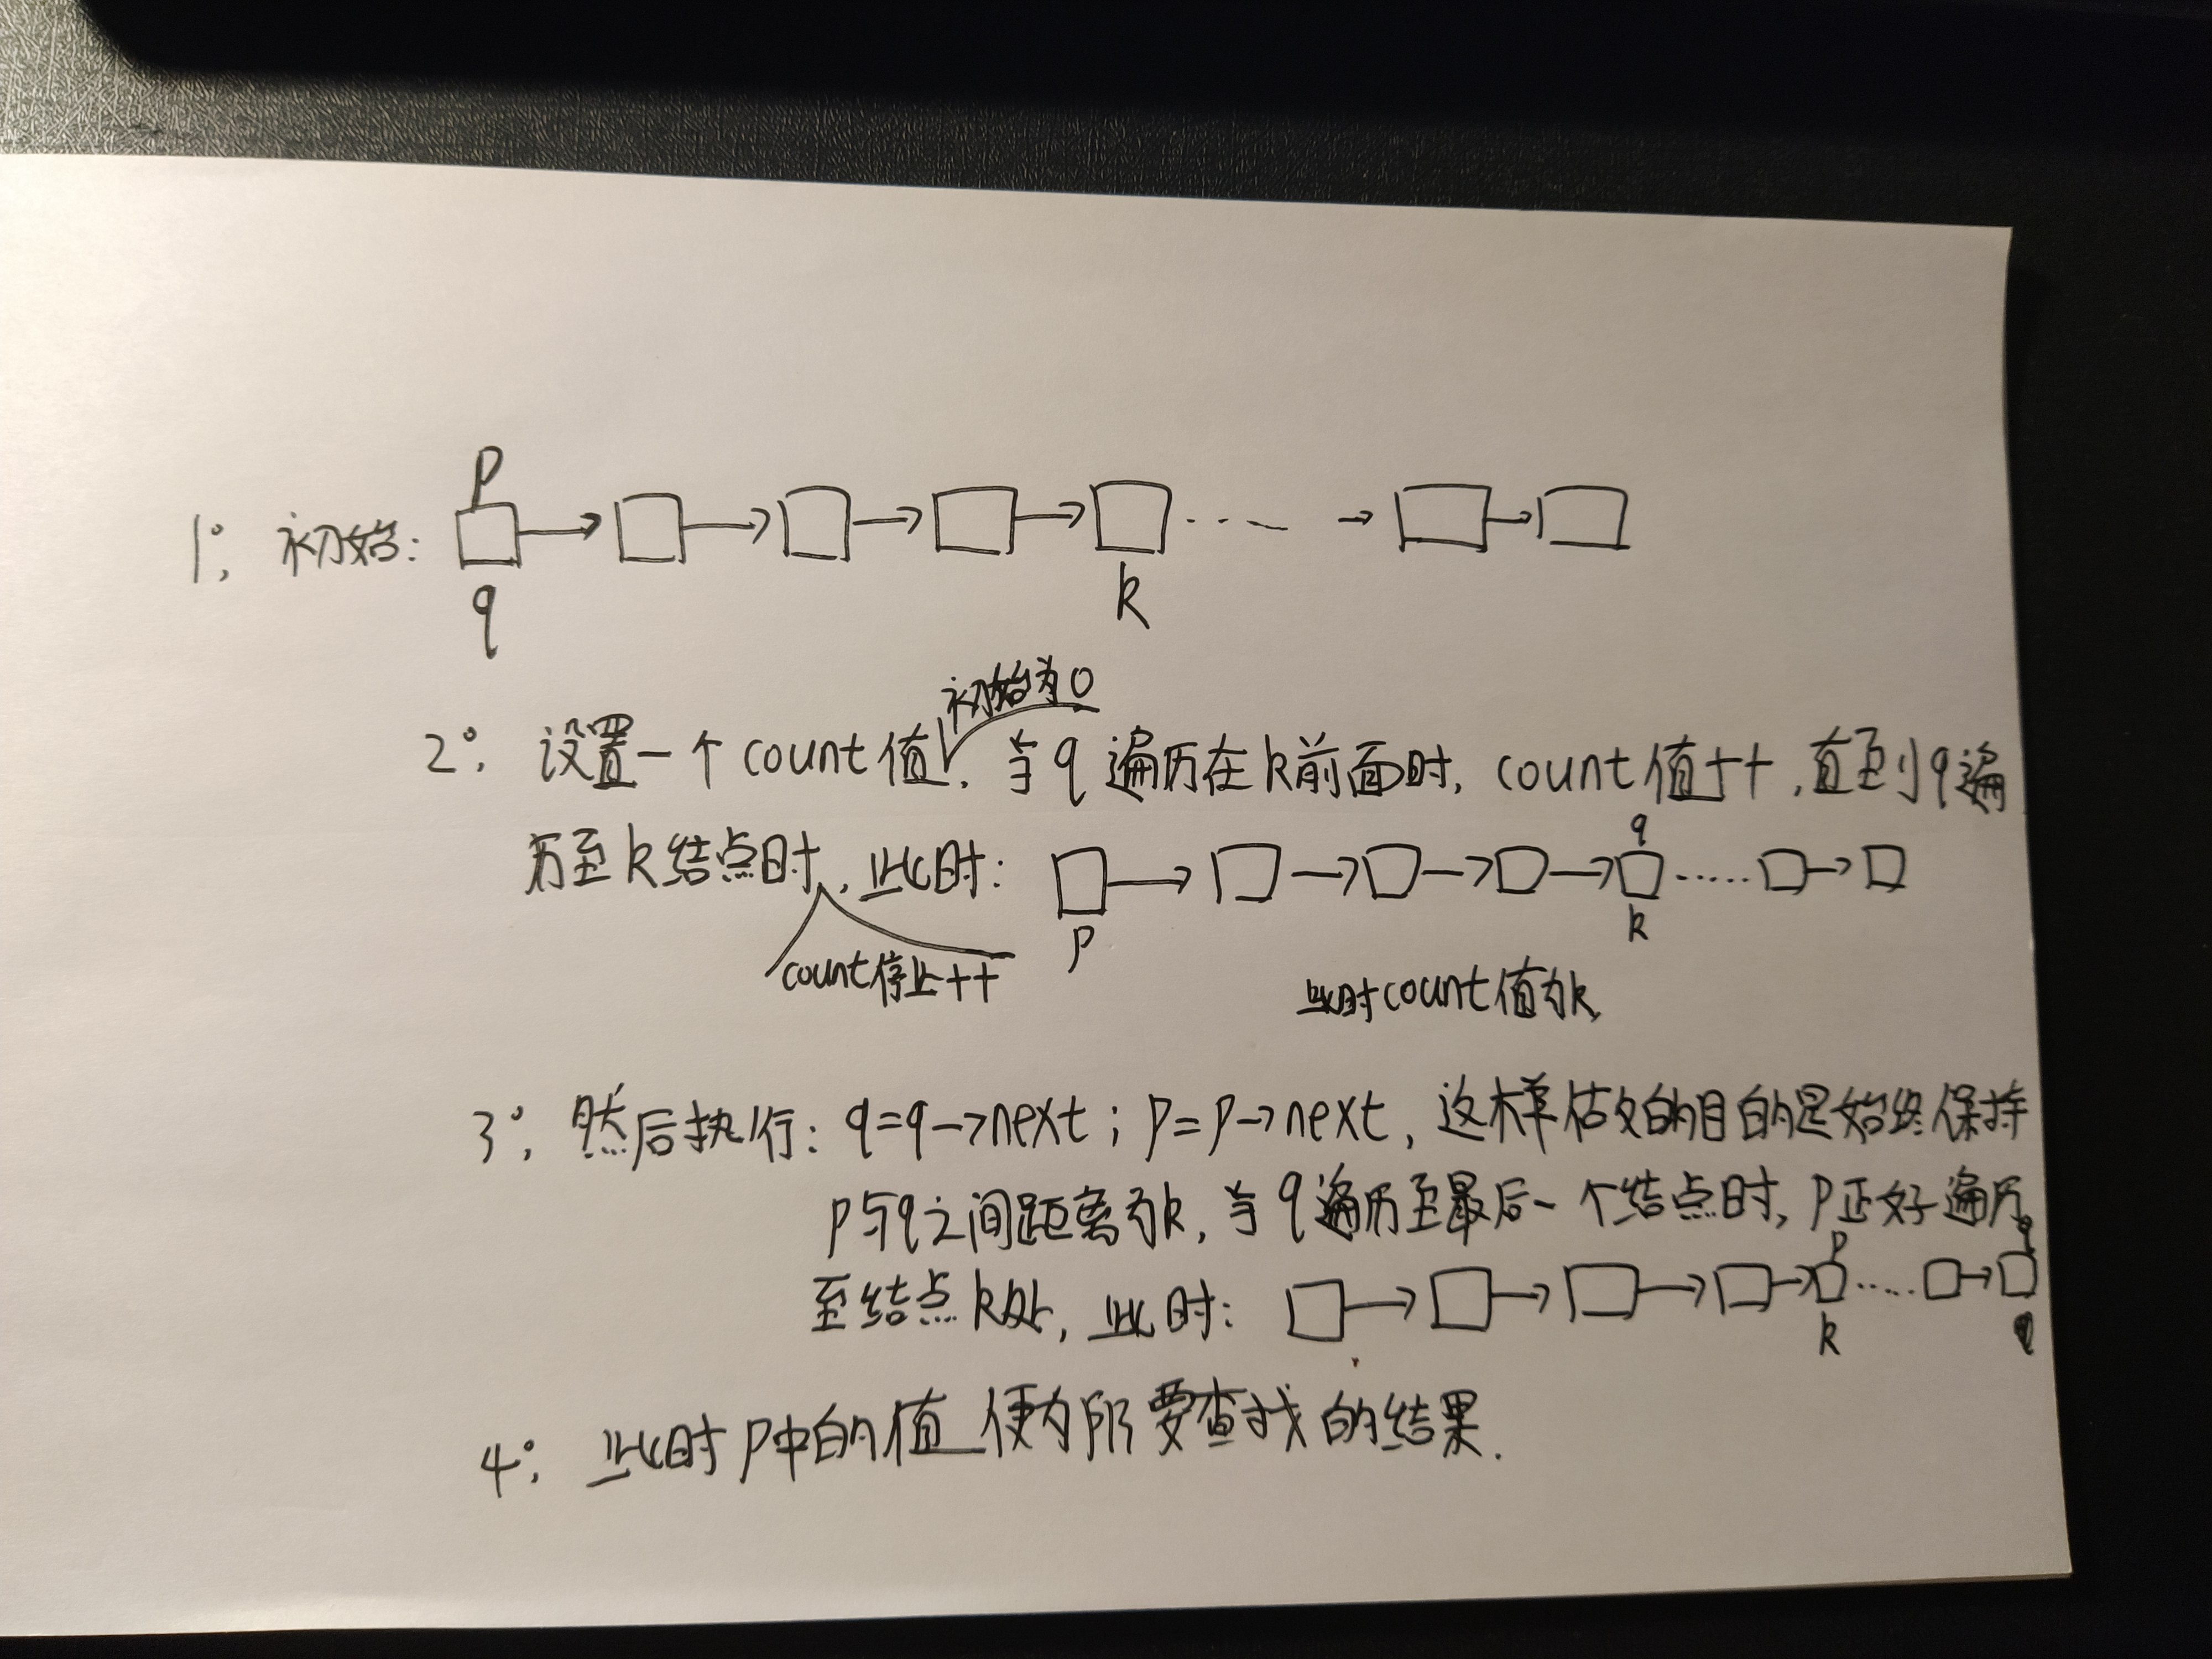 p
1°: 初始:
q
k
初始为0
2°: 设置一个count值, 当q遍历在k前面时, count值++, 直到q遍
历至k结点时, 此时:
q
k
p
count停止++
此时count值为k.
3°: 然后执行: q=q→next; p=p→next, 这样做的目的是始终保持
p与q之间距离为k, 当q遍历至最后一个结点时, p正好遍历
至结点k处, 此时:
p
q
k
4°: 此时p中的值便为所要查找的结果.